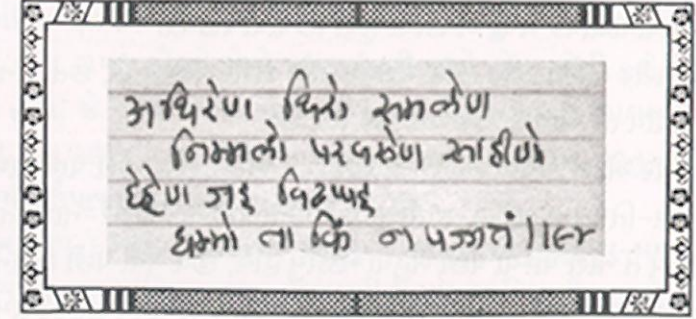 अथिरेण थिरो समलेण
निम्मलो परवसेण साहीणो
देहेण जइ विढप्पइ
धम्मो ता किं न पज्जतं ॥